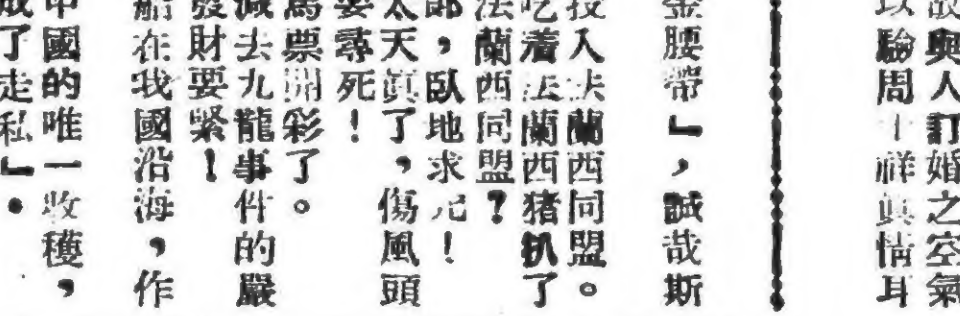 放與人訂婚之空氣
以驗周十祥眞情耳
金腰帶』，誠哉斯
投入法蘭西同盟。
吃着法蘭西猪扒了
法蘭西同盟？
郎，臥地求元！
太天眞了，傷風頭
要尋死！
馬票開彩了。
減去九龍事件的嚴
發財要緊！
船在我國沿海，作
中國的唯一收穫，
成了走私』．